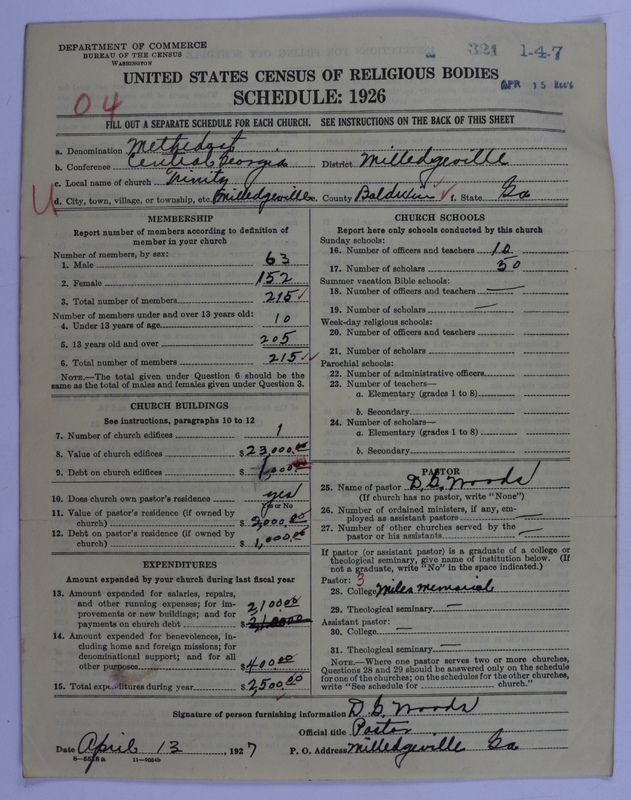 DEPARTMENT OF COMMERCE
BUREAU OF THE CENSUS
WASHINGTON
321 1-4-7
UNITED STATES CENSUS OF RELIGIOUS BODIES
APR 15
SCHEDULE: 1926
04
FILL OUT A SEPARATE SCHEDULE FOR EACH CHURCH. SEE INSTRUCTIONS ON THE BACK OF THIS SHEET
a. Denomination Methodist
b. Conference Central Georgia District Milledgeville
c. Local name of church Trinity
U d. City, town, village, or township, etc. Milledgeville e. County Baldwin ✓ f. State Ga
MEMBERSHIP
Report number of members according to definition of
member in your church
Number of members, by sex:
1. Male 63
2. Female 152
3. Total number of members 215 ✓
Number of members under and over 13 years old:
4. Under 13 years of age 10
5. 13 years old and over 205
6. Total number of members 215 ✓✓
NOTE.—The total given under Question 6 should be the
same as the total of males and females given under Question 3.
CHURCH BUILDINGS
See instructions, paragraphs 10 to 12
7. Number of church edifices 1
8. Value of church edifices $ 23,000.00
9. Debt on church edifices $
10. Does church own pastor's residence yes
Yes or No
11. Value of pastor's residence (if owned by
church) $ 2,000.00
12. Debt on pastor's residence (if owned by
church) $ 1,000.00
EXPENDITURES
Amount expended by your church during last fiscal year
13. Amount expended for salaries, repairs,
and other running expenses; for im-
provements or new buildings; and for
payments on church debt $ 2,100.00
14. Amount expended for benevolences, in-
cluding home and foreign missions; for
denominational support; and for all
other purposes $ 400.00
15. Total expenditures during year $ 2,500.00
CHURCH SCHOOLS
Report here only schools conducted by this church
Sunday schools:
16. Number of officers and teachers 10
17. Number of scholars 50
Summer vacation Bible schools:
18. Number of officers and teachers —
19. Number of scholars —
Week-day religious schools:
20. Number of officers and teachers
21. Number of scholars
Parochial schools:
22. Number of administrative officers
23. Number of teachers—
a. Elementary (grades 1 to 8)
b. Secondary
24. Number of scholars—
a. Elementary (grades 1 to 8)
b. Secondary
PASTOR
25. Name of pastor D. G. Woods
(If church has no pastor, write "None")
26. Number of ordained ministers, if any, em-
ployed as assistant pastors —
27. Number of other churches served by the
pastor or his assistants —
If pastor (or assistant pastor) is a graduate of a college or
theological seminary, give name of institution below. (If
not a graduate, write "No" in the space indicated.)
Pastor: 3
28. College Miles Memorial
29. Theological seminary —
Assistant pastor:
30. College —
31. Theological seminary —
NOTE.—Where one pastor serves two or more churches,
Questions 28 and 29 should be answered only on the schedule
for one of the churches; on the schedules for the other churches,
write "See schedule for church."
Signature of person furnishing information D. G. Woods
Official title Pastor
Date April 13, 1927 P. O. Address Milledgeville Ga